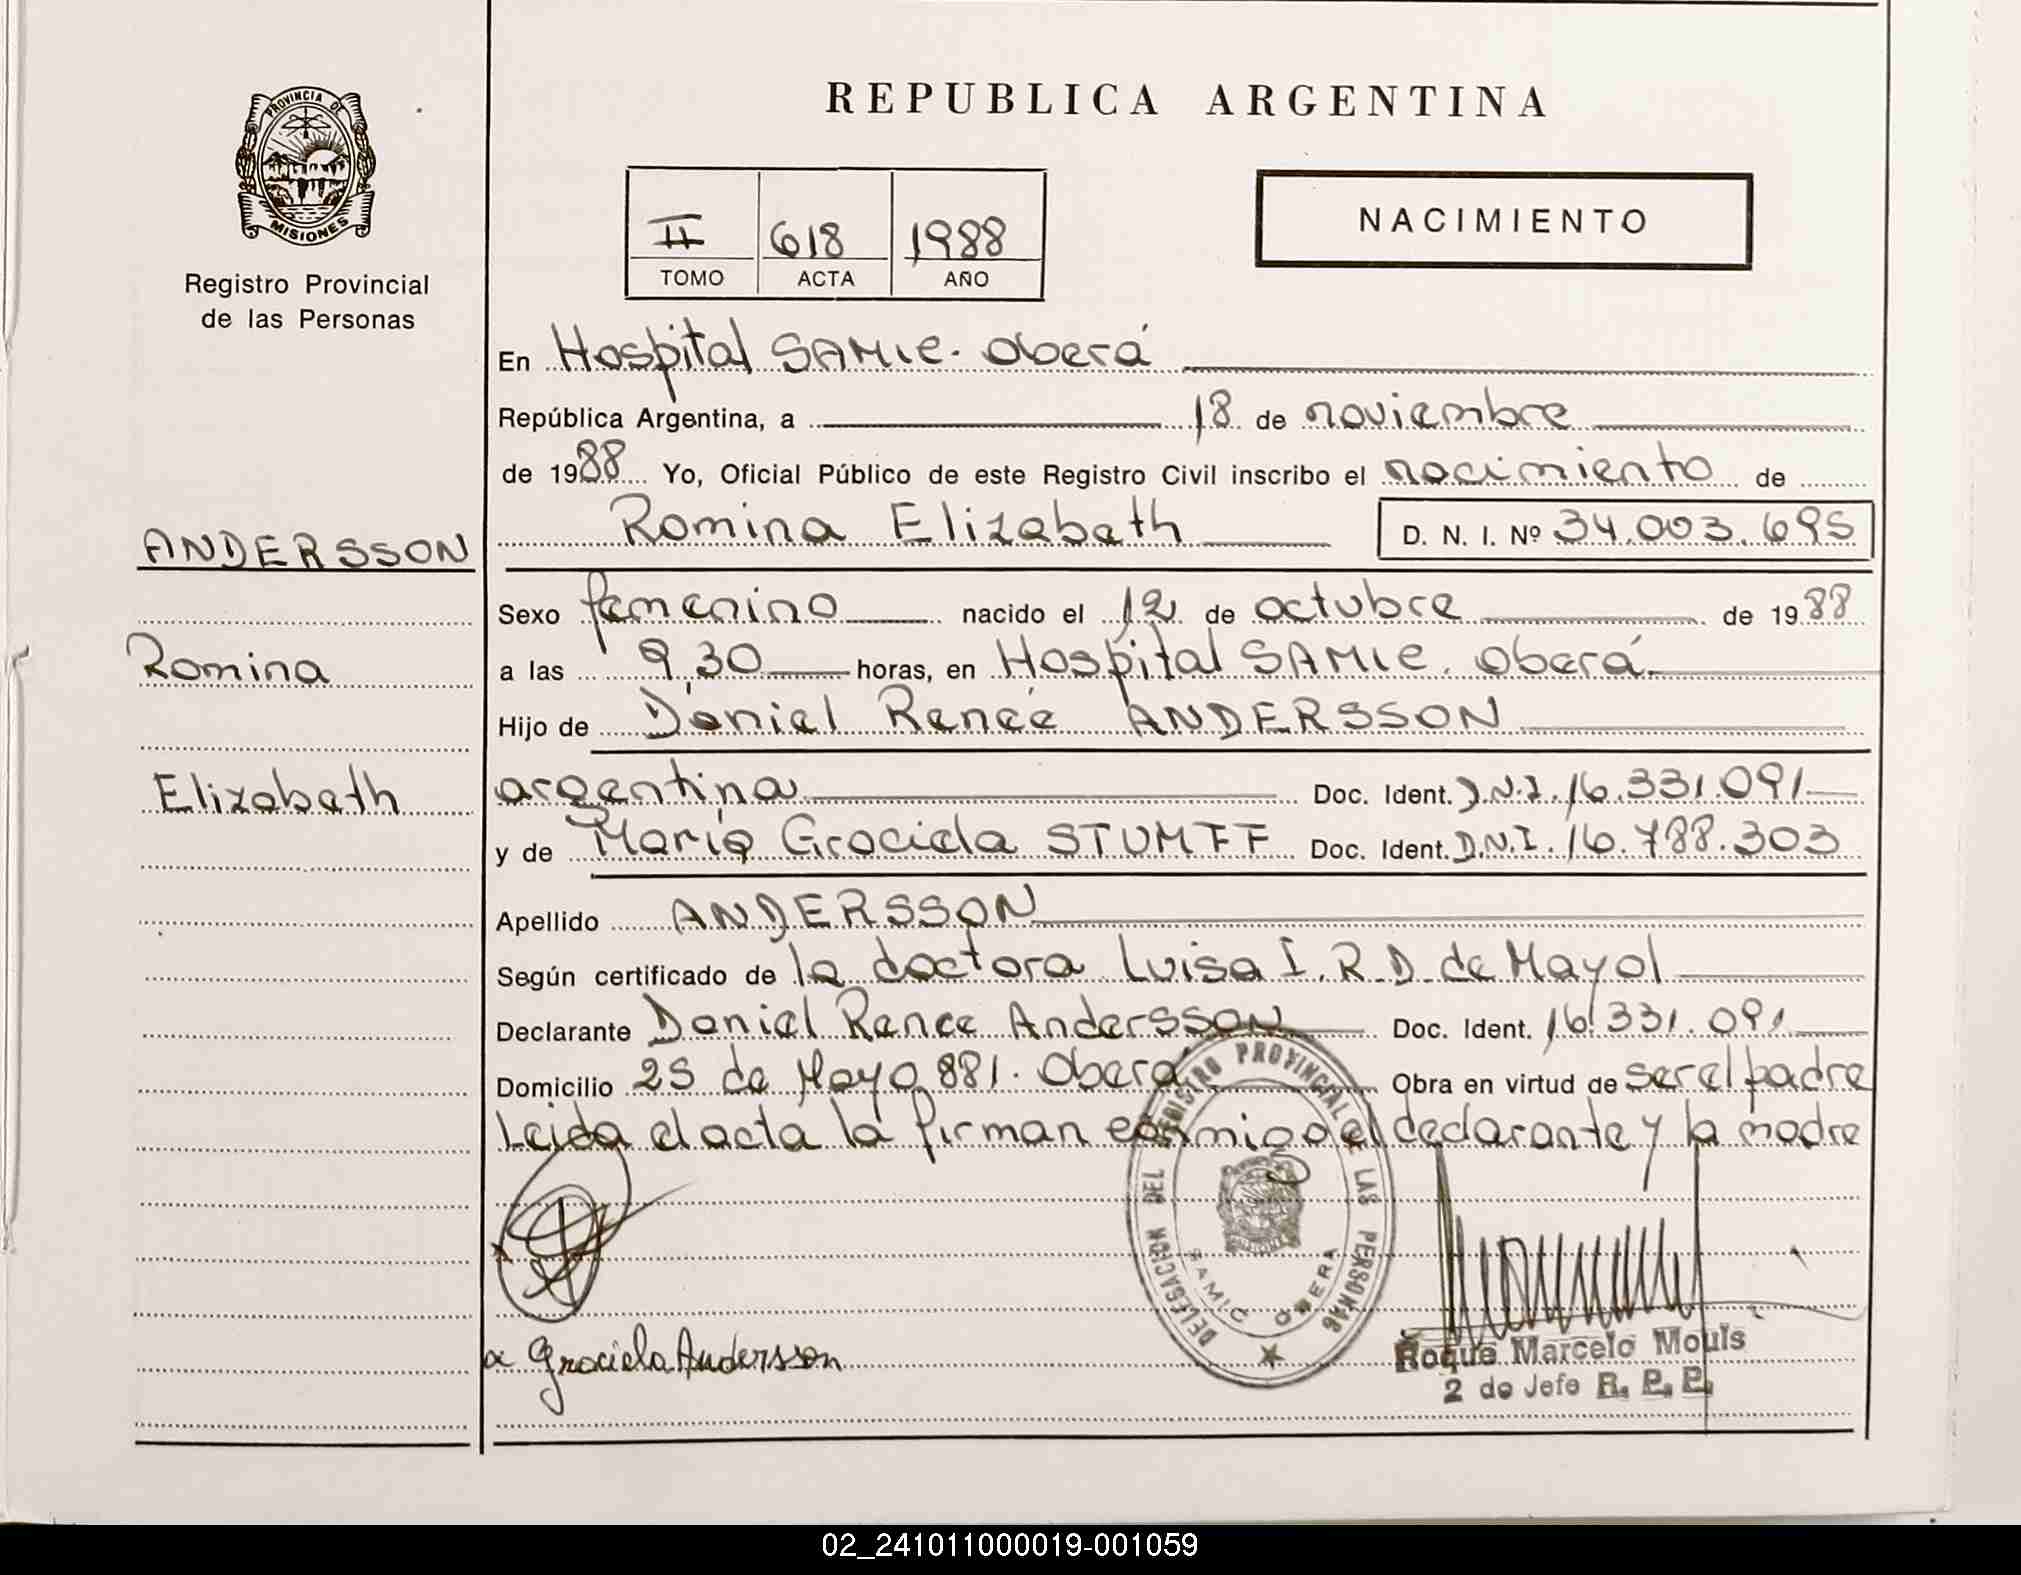 PROVINCIA DE
MISIONES
Registro Provincial
de las Personas
ANDERSSON
Romina
Elizabeth
REPUBLICA ARGENTINA
II 618 1988
TOMO ACTA AÑO
NACIMIENTO
En Hospital SAMIC. Oberá
República Argentina, a 18 de noviembre
de 1988 Yo, Oficial Público de este Registro Civil inscribo el nacimiento de
Romina Elizabeth D. N. I. Nº 34.003.695
Sexo femenino nacido el 12 de octubre de 1988
a las 9,30 horas, en Hospital SAMIC. Oberá
Hijo de Daniel Reneé ANDERSSON
argentina Doc. Ident. D.N.I. 16.331.091
y de María Graciela STUMFF Doc. Ident. D.N.I. 16.788.303
Apellido ANDERSSON
Según certificado de la doctora Luisa I. R. D. de Mayol
Declarante Daniel Renee Andersson Doc. Ident. 16.331.091
Domicilio 25 de Mayo 881. Oberá Obra en virtud de ser el padre
Leida el acta la firman conmigo el declarante y la madre
DELEGACION DEL REGISTRO PROVINCIAL DE LAS PERSONAS
SAMIC OBERA
Graciela Andersson
Roque Marcelo Mouls
2 do Jefe R. P. P.
02_241011000019-001059